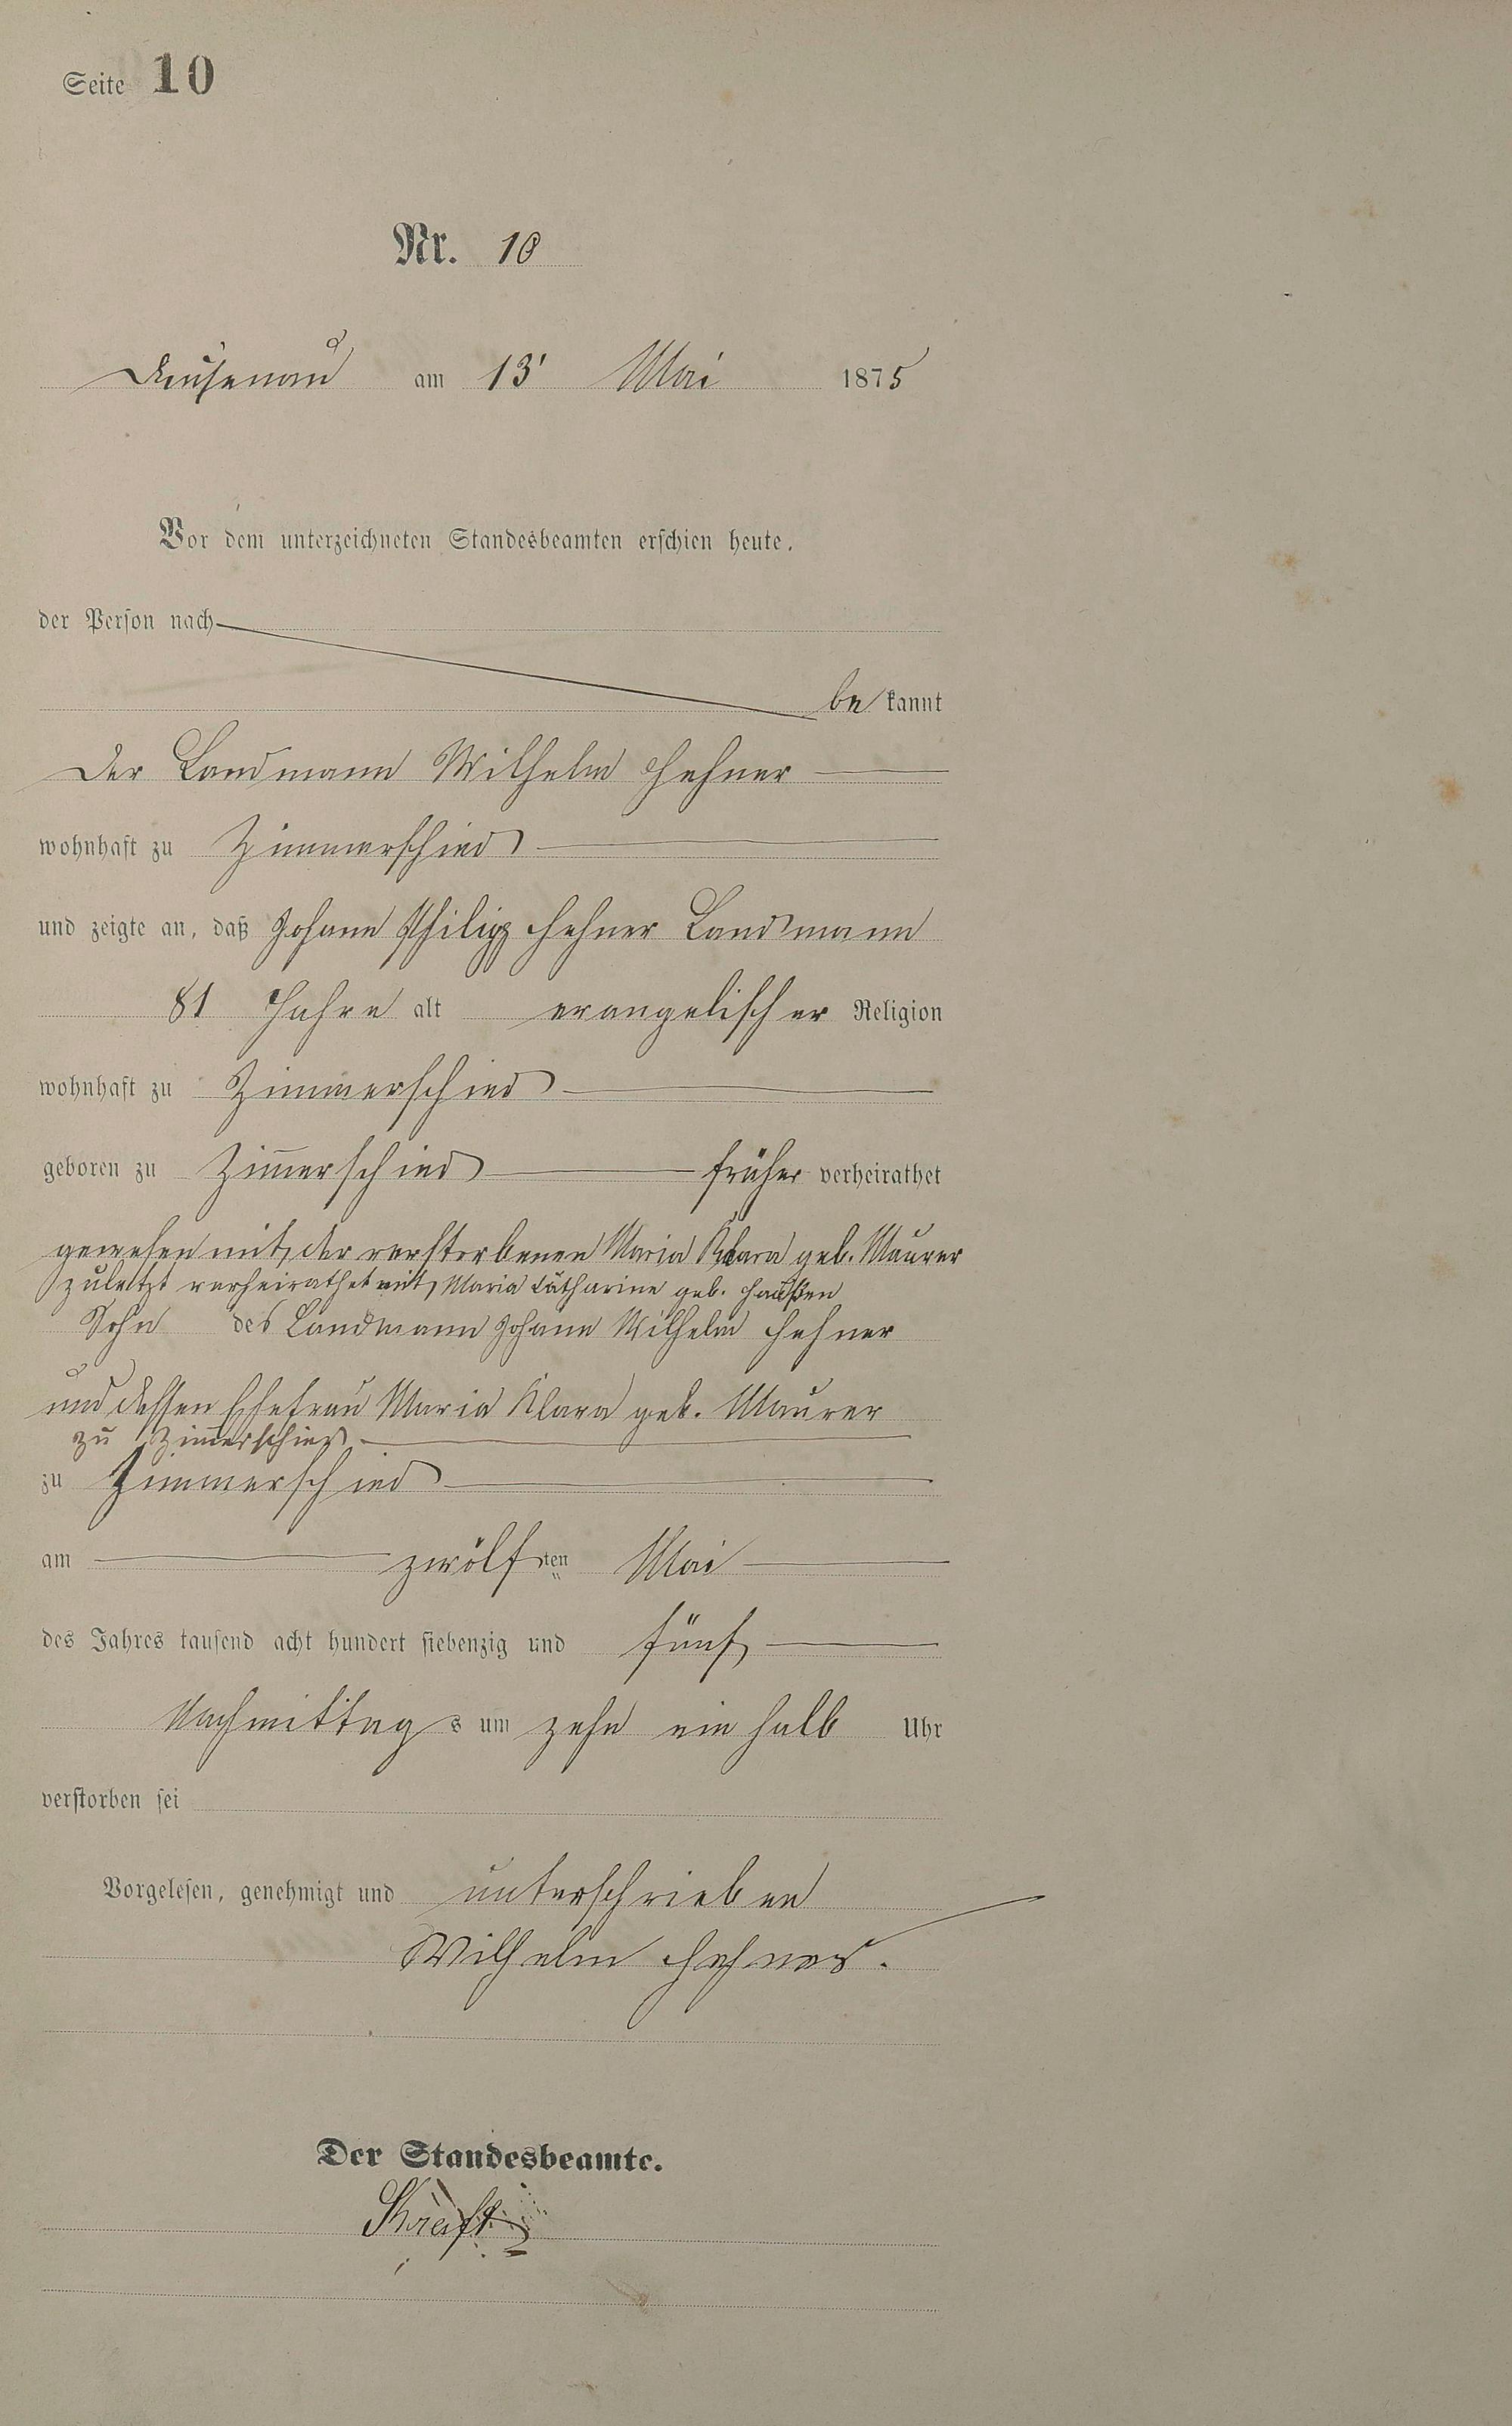 Seite 10
Nr. 10
Dausenau am 13' Mai 1875
Vor dem unterzeichneten Standesbeamten erschien heute,
der Person nach
be kannt
Der Landmann Wilhelm Hehner
wohnhaft zu Zimmerschied
und zeigte an, daß Johann Philipp Hehner Landmann
81 Jahre alt evangelischer Religion
wohnhaft zu Zimmerschied
geboren zu Zim̅erschied früher verheirathet
gewesen mit der verstorbenen Maria Klara geb. Maurer
zuletzt verheirathet mit Maria Catharine geb.
Sohn des Landmann Johann Wilhelm Hehner
und dessen Ehefrau Maria Klara geb. Maurer
zu Zim̅erschied
zu Zimmerschied
am zwölften Mai
des Jahres tausend acht hundert siebenzig und fünf
Nachmittags um zehn ein halb Uhr
verstorben sei
Vorgelesen, genehmigt und unterschrieben
Wilhelm Hehner.
Der Standesbeamte.